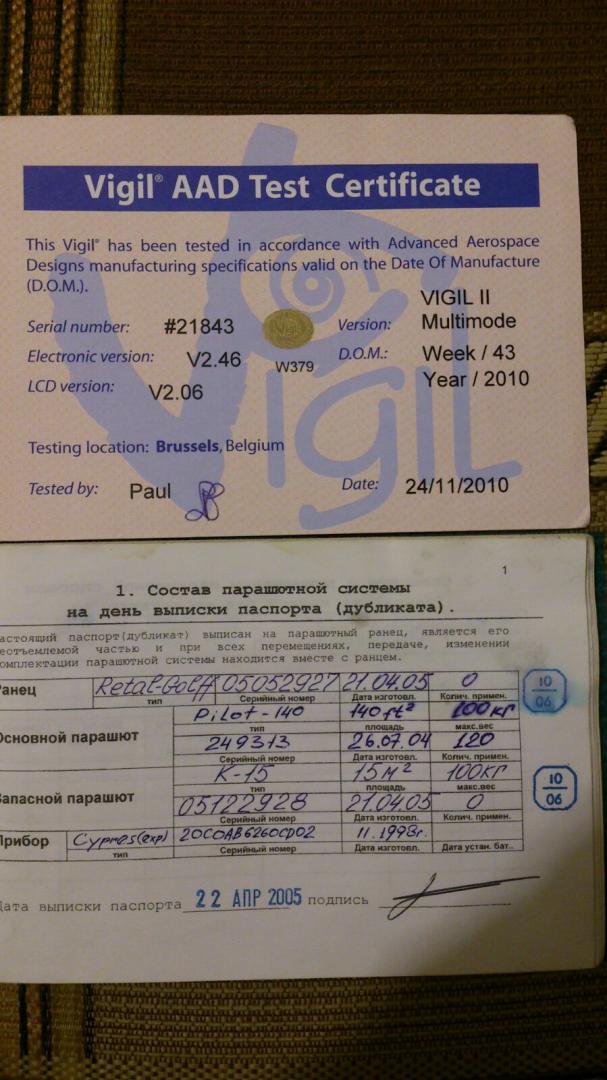 Vigil® AAD Test Certificate
This Vigil® has been tested in accordance with Advanced Aerospace
Designs manufacturing specifications valid on the Date Of Manufacture
(D.O.M.).
Serial number: #21843 Version: VIGIL II
Multimode
Electronic version: V2.46 W379 D.O.M.: Week / 43
Year / 2010
LCD version: V2.06
Vigil
Testing location: Brussels, Belgium
Tested by: Paul Date: 24/11/2010
1
1. Состав парашютной системы
на день выписки паспорта (дубликата).
астоящий паспорт(дубликат) выписан на парашютный ранец, является его
еотъемлемой частью и при всех перемещениях, передаче, изменении
омплектации парашютной системы находится вместе с ранцем.
Ранец 05052927 21.04.05 0 10
06
тип Серийный номер Дата изготовл. Колич. примен.
Pilot-140 140 ft² 100кг
Основной парашют тип площадь макс.вес
249313 26.07.04 120
Серийный номер Дата изготовл. Колич. примен.
К-15 15м² 100кг
тип площадь макс.вес
Запасной парашют 05122928 21.04.05 0 10
06
Серийный номер Дата изготовл. Колич. примен.
Прибор Cypres(exp) 11.1998г.
тип Серийный номер Дата изготовл. Дата устан. бат..
Дата выписки паспорта 22 АПР 2005 подпись